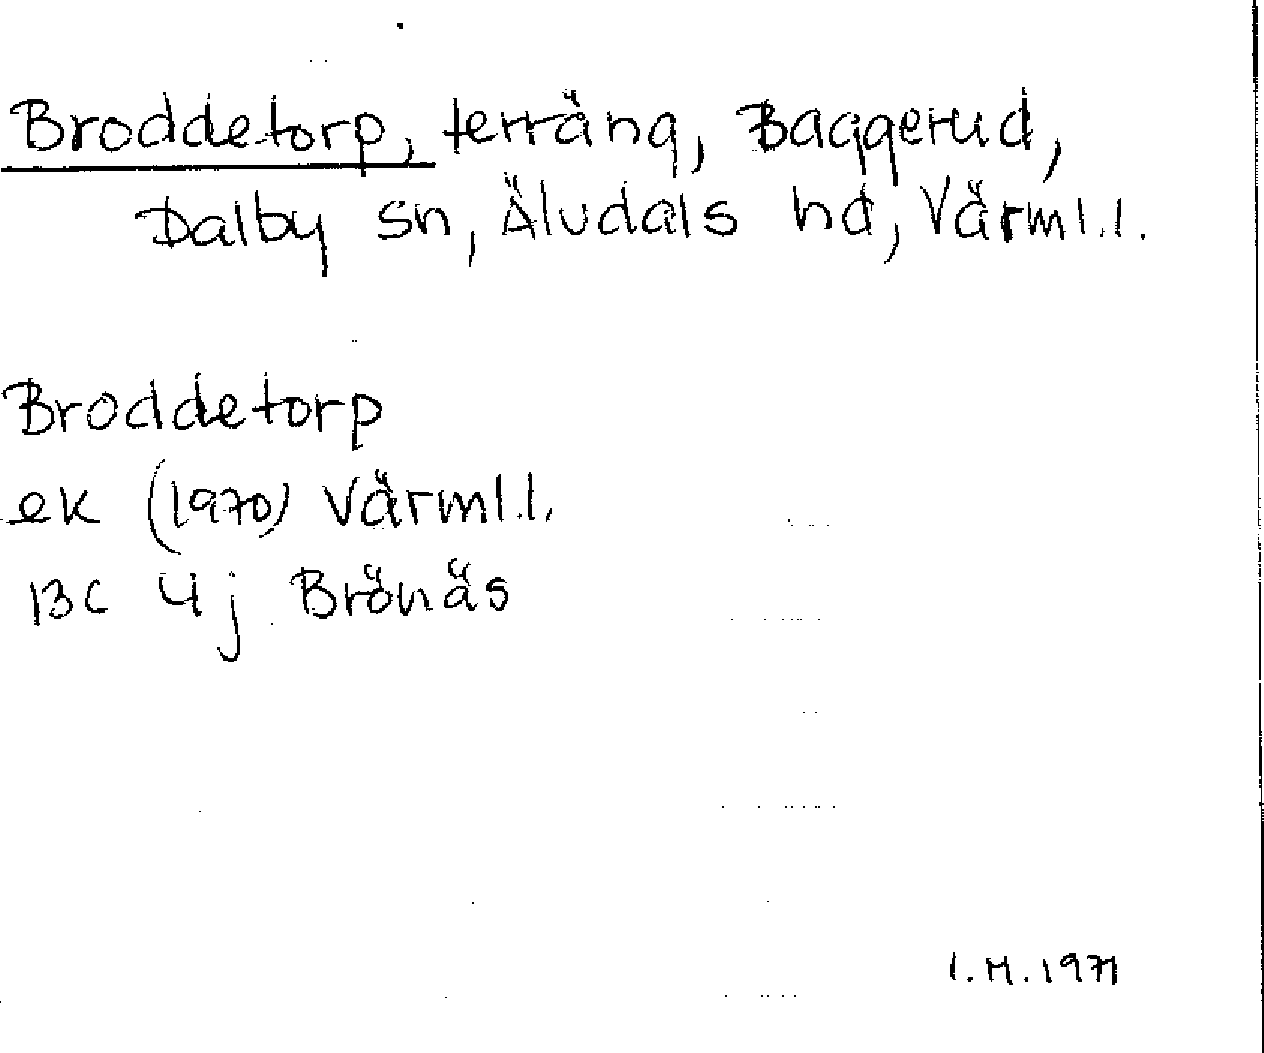 Broddetorp, terräng, Baggerud,
Dalby sn, Äludals hd, Värml.l.
Broddetorp
ek (1970) Värml.l.
13C 4j Brönäs
I.M.1971